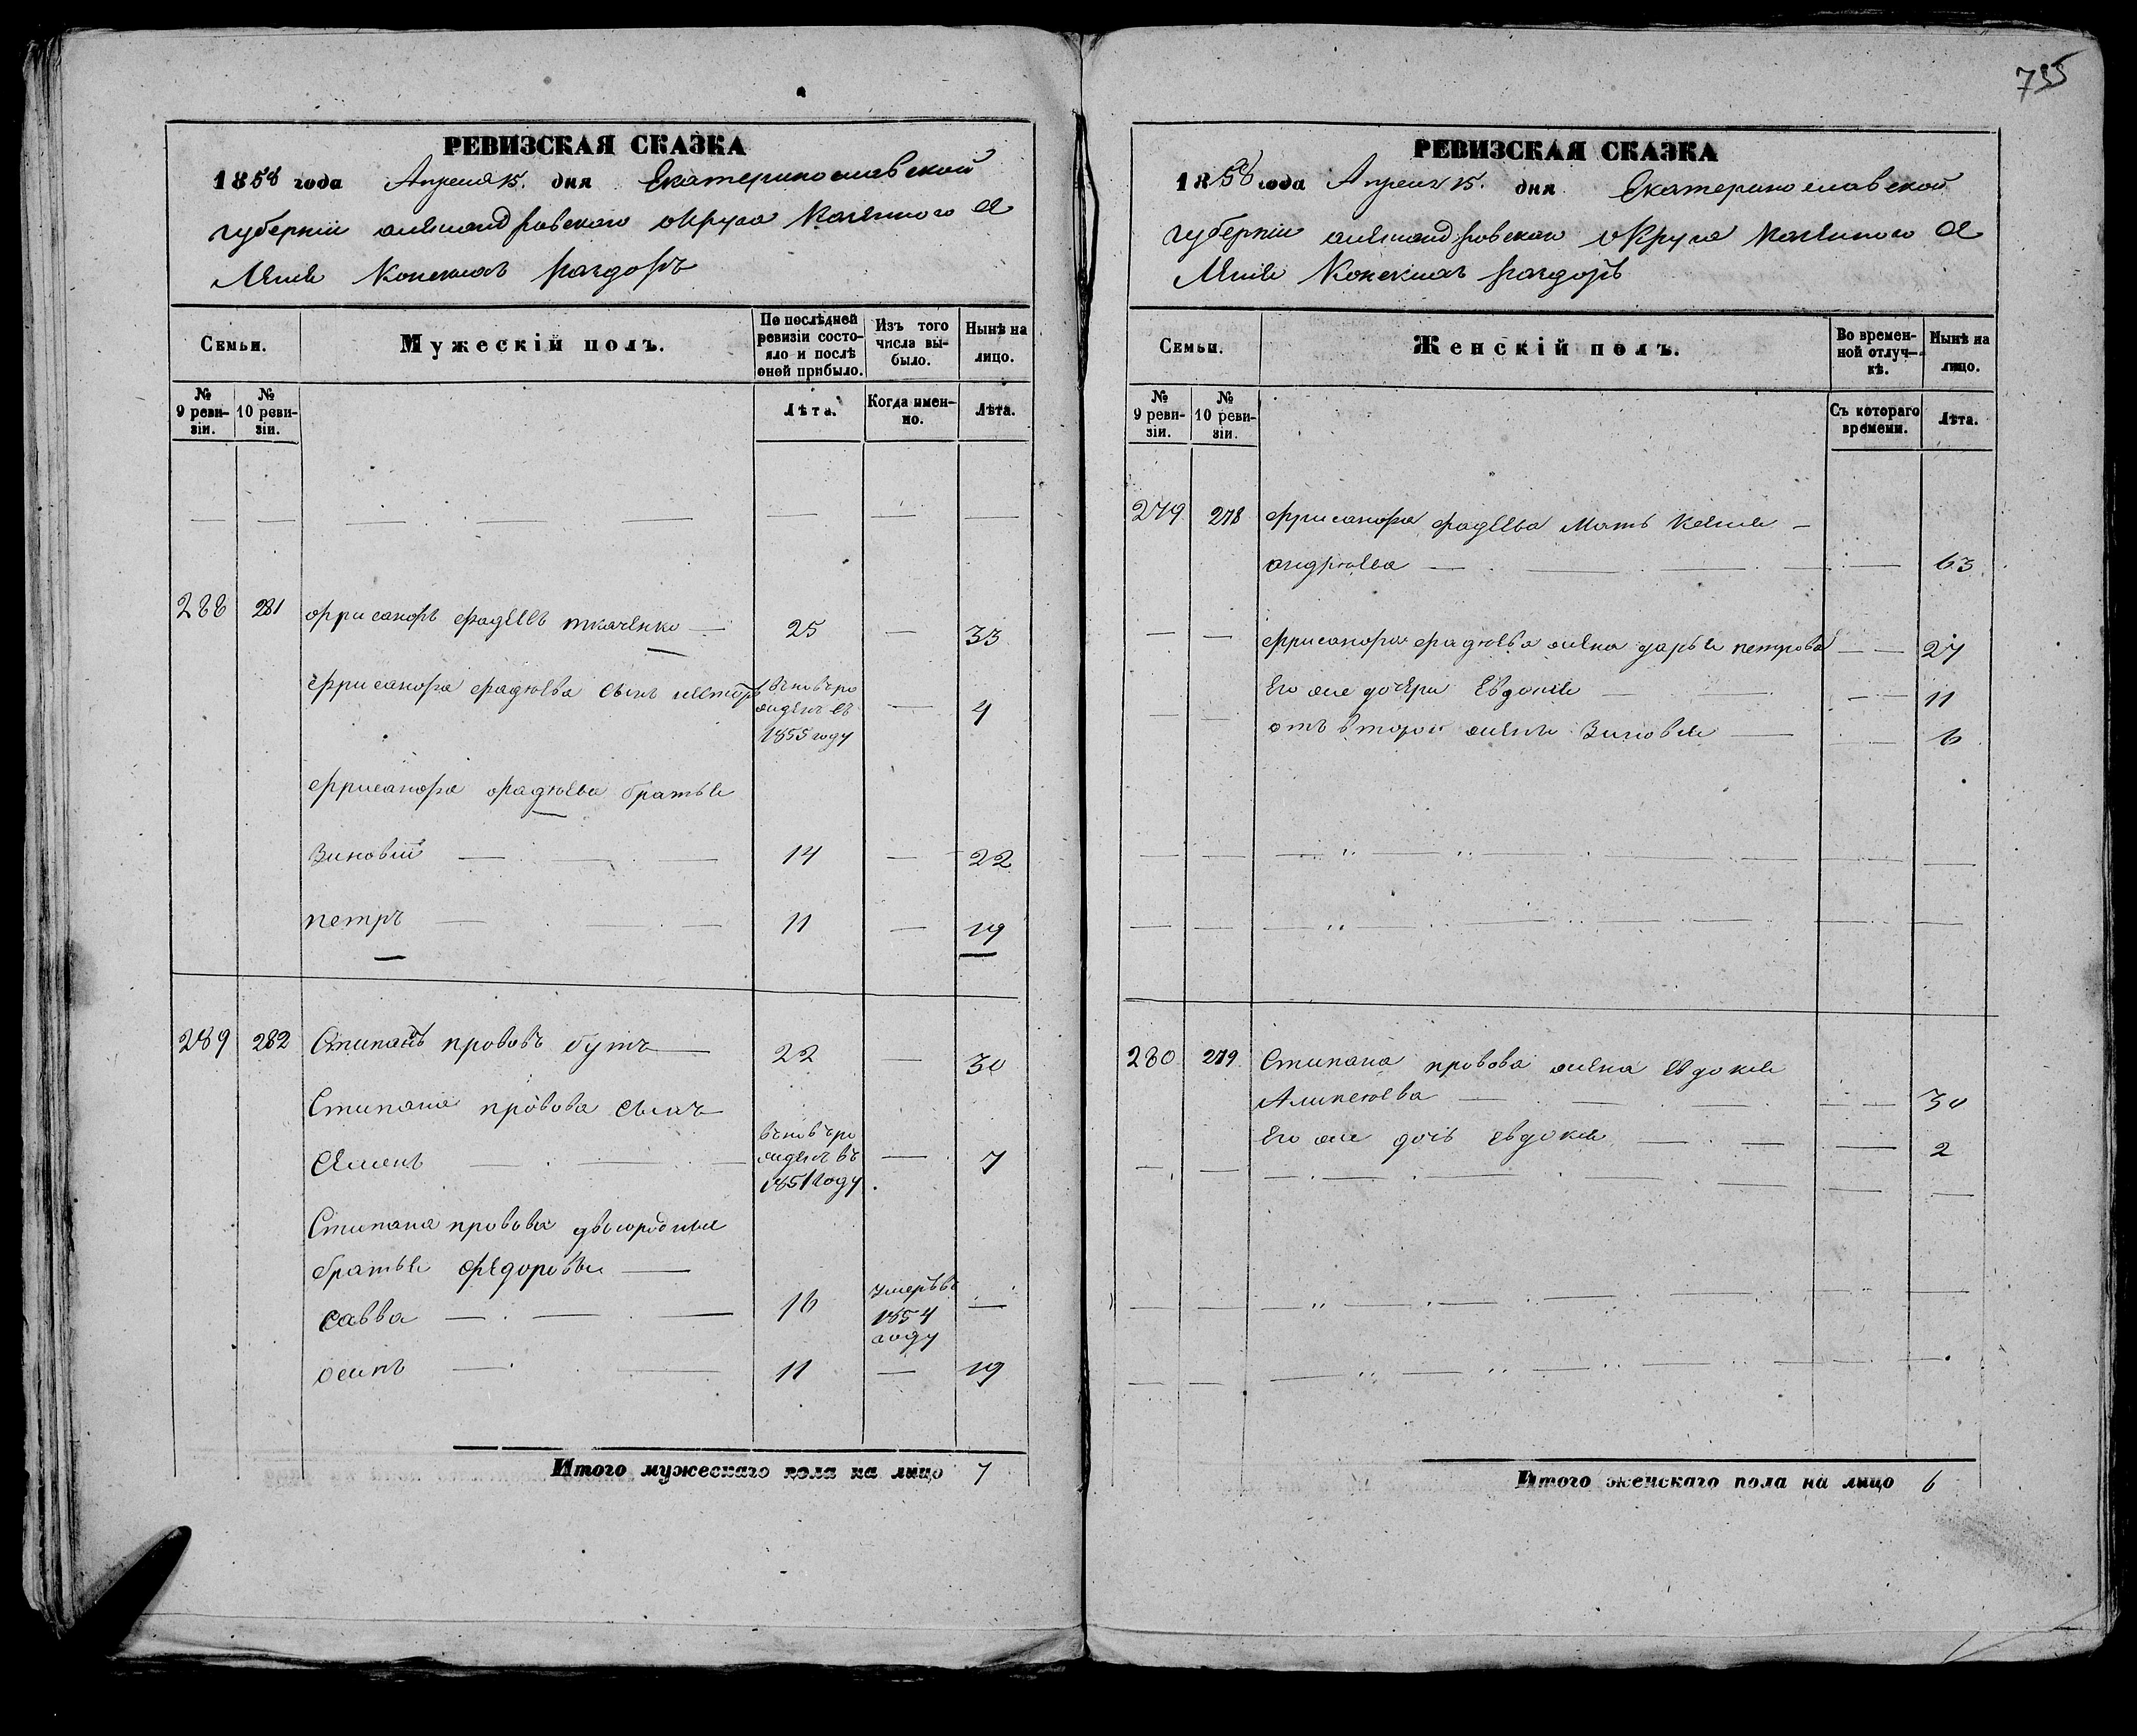 755
РЕВИЗСКАЯ СКАЗКА
1858 года Апреля 15. дня Екатеринославской
губернiи александровскаго округа казенного се
ления Конскихъ раздоръ
Семьи.
Мужескiй полъ.
По послѣдней ревизiи состояло и послѣ оной прибыло.
Изъ того числа выбыло.
Нынѣ на лицо.
№ 9 ревизiи.
№ 10 ревизiи.
Лѣта.
Когда именно.
Лѣта.
288 281 фрисанфъ фадеевъ ткаченко — 25 — 33
фрисанфа фадѣева сынъ нестеръ вновь рожденъ въ 1855 году — 4
фрисанфа фадѣева братья
Зиновiй — 14 — 22
петръ — 11 — 19
289 282 Стипанъ прововъ бутъ — 22 — 30
Стипана провова сынъ
Семенъ — вновь рожденъ въ 1851 году — 7
Стипана провова двоюродные
братья федоровы —
савва — 16 умеръ въ 1854 году —
осипъ — 11 — 19
Итого мужескаго пола на лицо 7
РЕВИЗСКАЯ СКАЗКА
1858 года Апреля 15. дня Екатеринославской
губернiи александровскаго округа казенного се
ления Конскихъ раздоръ
Семьи.
Женскiй полъ.
Во временной отлучкѣ.
Нынѣ на лицо.
№ 9 ревизiи.
№ 10 ревизiи.
Съ котораго времени.
Лѣта.
279 278 фрисанфа фадеева мать Ксения —
андрѣева — 63
— — фрисанфа фадѣева жена дарья петрова — 27
Его же дочери Евдокия — 11
— — отъ второй жены Зиновия — 6
280 279 Стипана провова жена евдокия
Алипѣева — 30
Его же дочь евдокия — 2
Итого женскаго пола на лицо 6